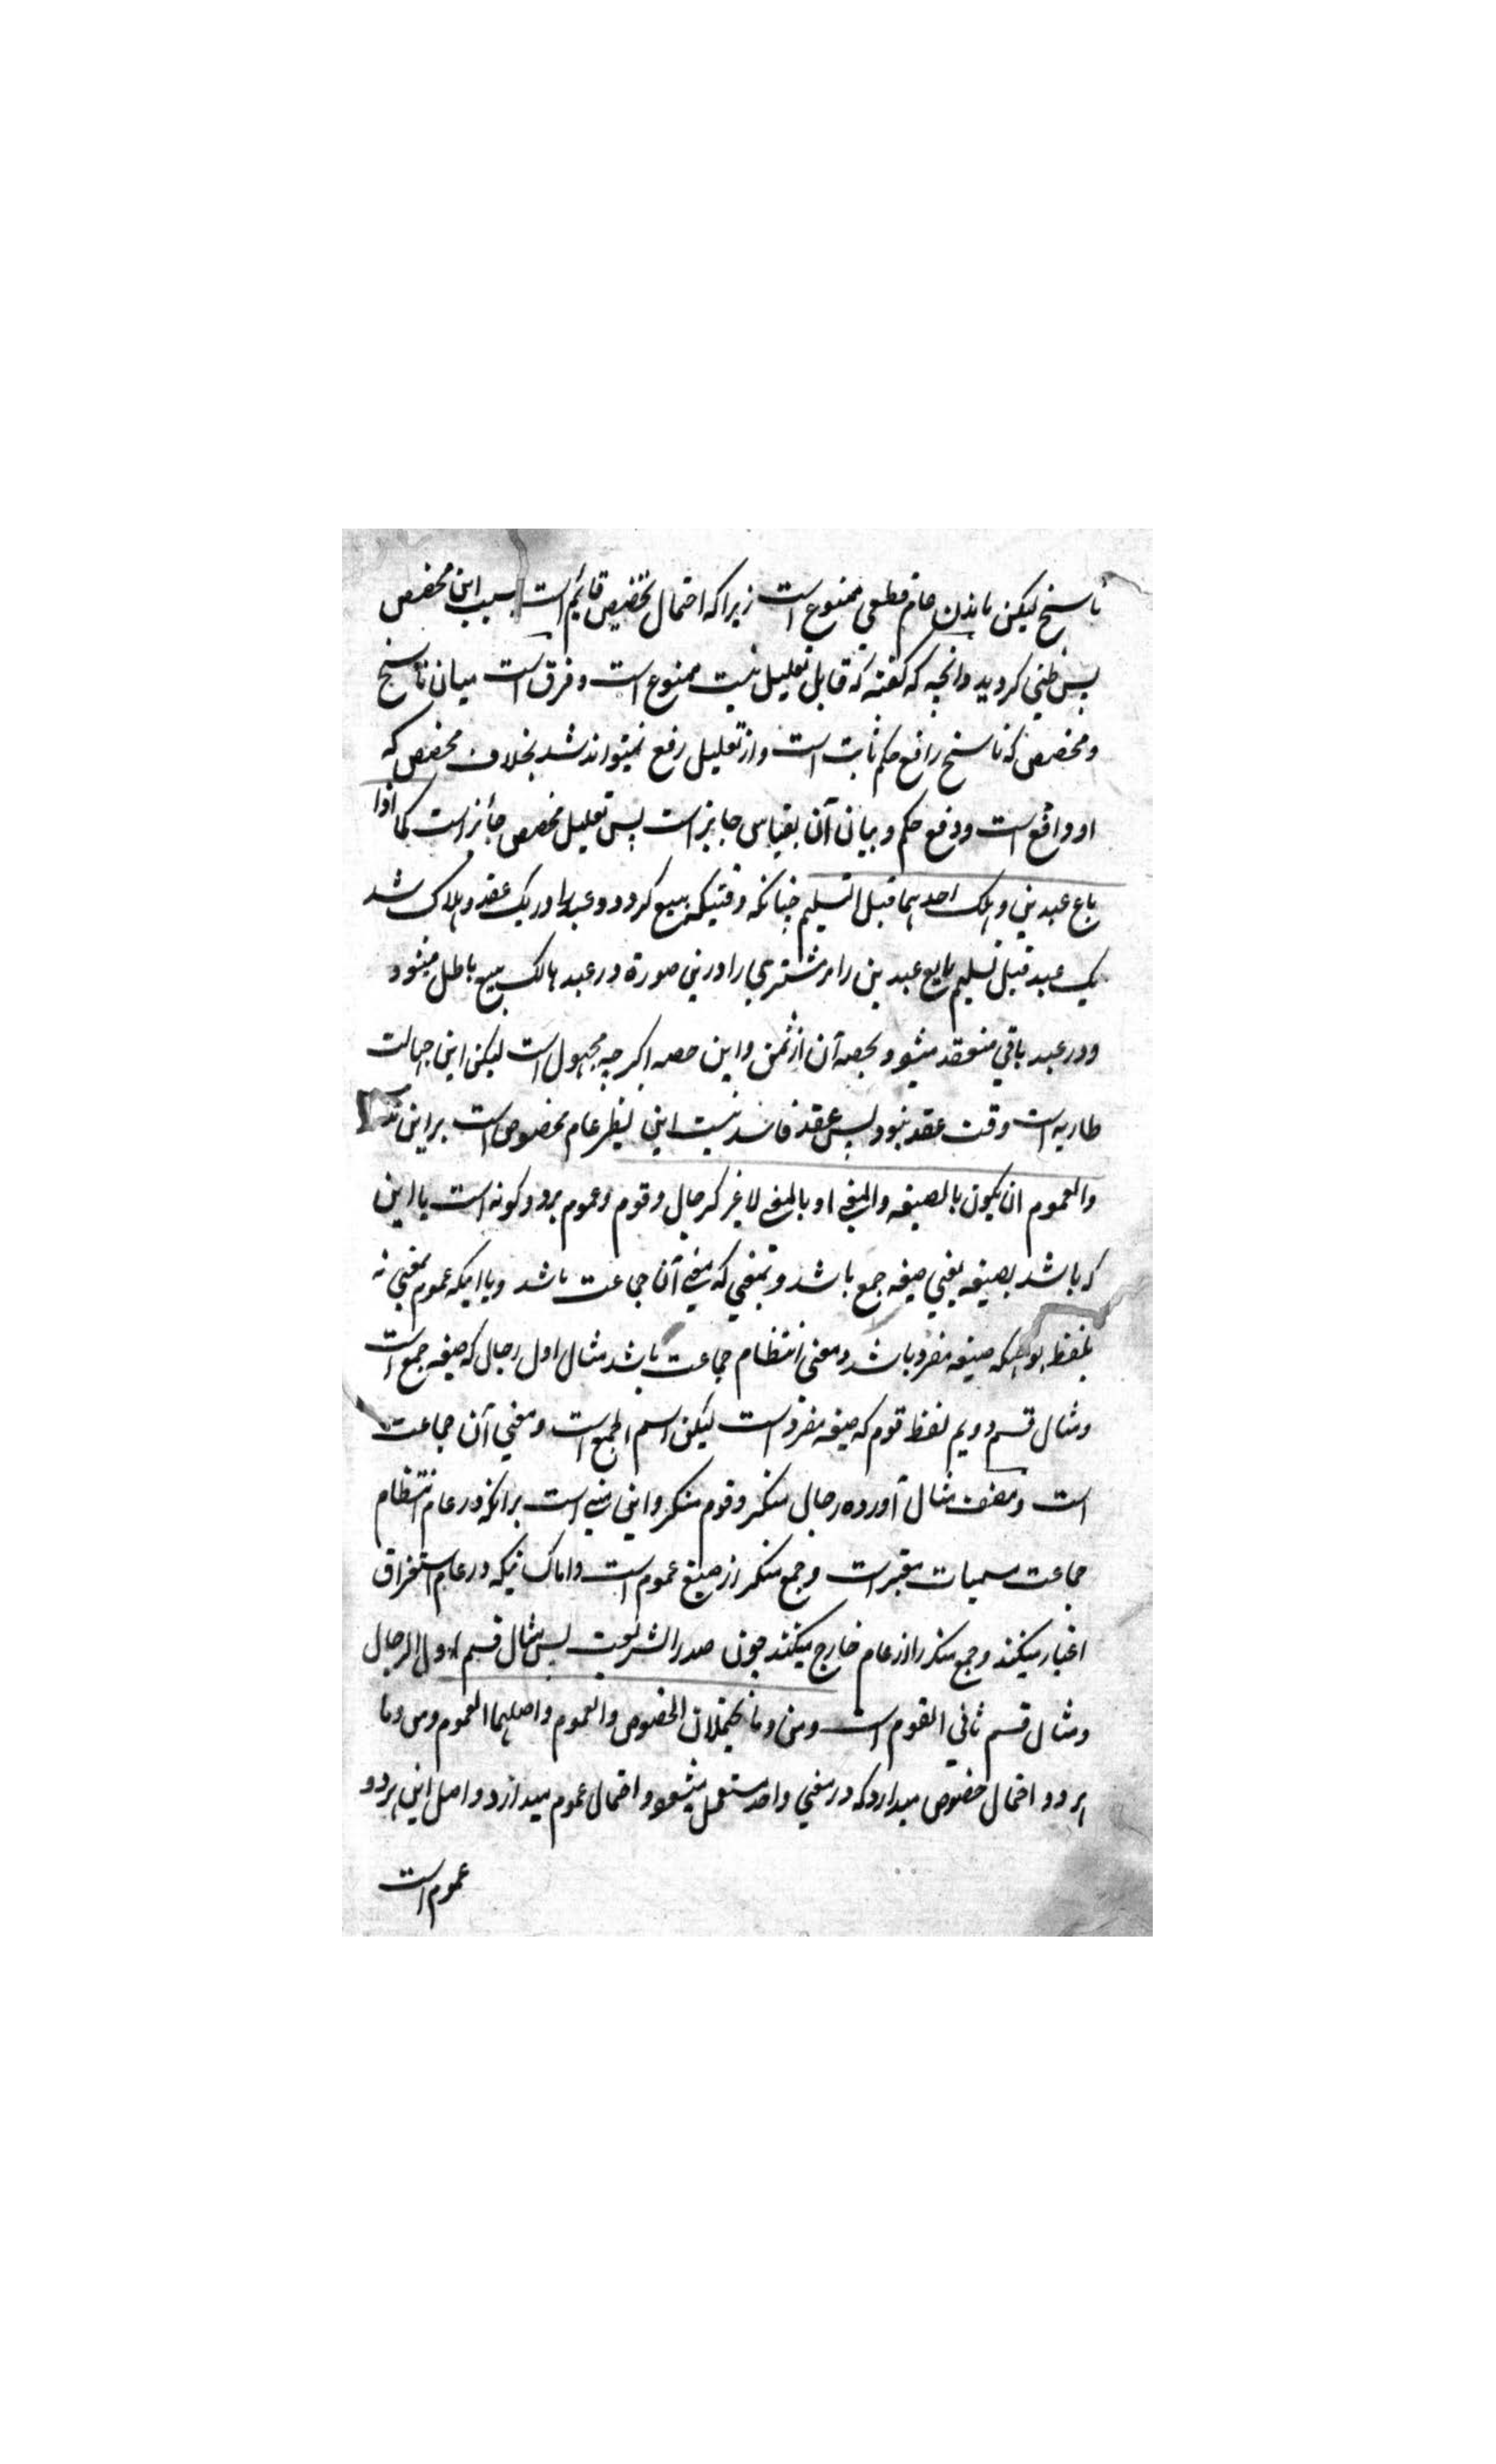 ناسخ لیکن ماندن عام قطعی ممنوع است زیراکه احتمال تخصیص قائم است بسبب این مخصص
پس ظنی کردید وانچه که کفته که قابل تعلیل نیست ممنوع است و فرق است میان ناسخ
و مخصص که ناسخ رافع حکم ثابت است و از تعلیل رفع نمیتواند شد بخلاف مخصص که
او دافع است و دفع حکم و بیان آن بقیاس جایز است پس تعلیل مخصص جائز است کما اذا
باع عبدین و هلک احدهما قبل التسلیم چنانکه وقتیکه بیع کرد دو عبد را در یک عقد و هلاک شد
یک عبد قبل تسلیم بایع عبدین را مر مشتری را درین صورة در عبد هالک بیع باطل میشود
و در عبد باقی منعقد میشود بحصه آن از ثمن و این حصه اکرچه مجهول است لیکن این جهالت
طاریه است وقت عقد نبود پس عقد فاسد نیست این نظیر عام مخصوص است براین
والعموم ان یکون بالصیغه والمعنی او بالمعنی لا غیر کرجال و قوم و عموم بر دو کونه است یا این
که باشد بصیغه یعنی صیغه جمع باشد و بمعنی که معنی آن جماعت باشد و یا اینکه عموم بمعنی نه
بلفظ بود صیغه مفرد باشد و معنی انتظام جماعت باشد مثال اول رجال که صیغه جمع است
و مثال قسم دویم لفظ قوم که صیغه مفرد است لیکن اسم الجمع است و معنی آن جماعت
است و مصنف مثال آورده رجال منکر و قوم منکر و این مبنی است برانکه در عام انتظام
جماعت مسمیات معتبر است و جمع منکر از صیغ عموم است و اما کسانیکه در عام استغراق
اعتبار میکنند و جمع منکر را از عام خارج میکنند چون صدر الشریعت پس مثال قسم اول الرجال
و مثال قسم ثانی القوم است و من و ما یحتملان الخصوص والعموم واصلهما العموم و من و ما
هر دو احتمال خصوص میدارد که در معنی واحد مستعمل میشود و احتمال عموم میدارد و اصل این هر دو
عموم است